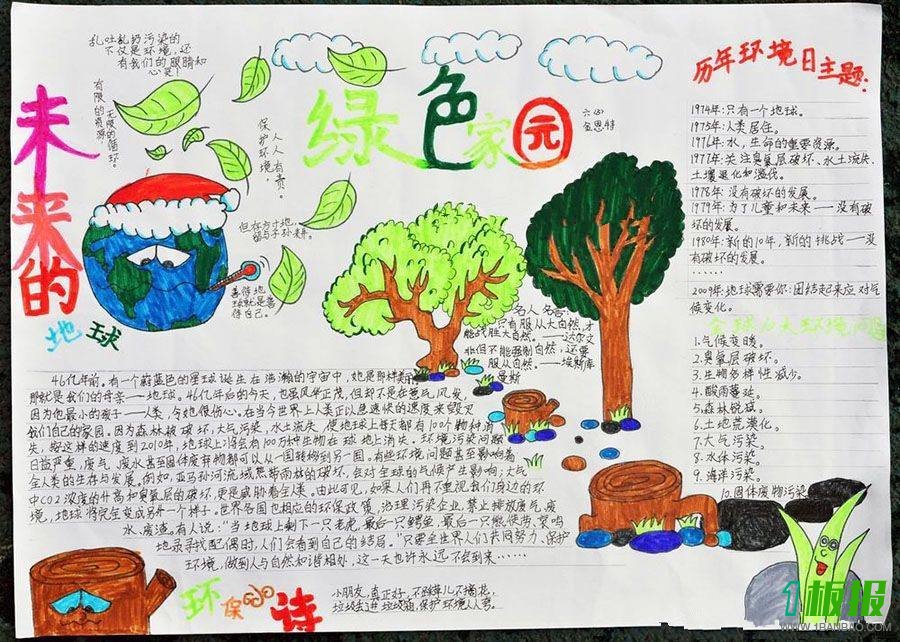 乱吐乱扔污染的
不仅是环境,还
有我们的眼睛和
心灵!
有限的资源
无限的循环。
保护环境
人人有责!
绿色家园
六(6)
历年环境日主题:
未来的
地球
但存方寸地,
留与子孙耕。
善待地
球就是善
待自己。
1974年:只有一个地球。
1975年:人类居住。
1976年:水,生命的重要资源。
1977年:关注臭氧层破坏、水土流失、
土壤退化和滥伐。
1978年:没有破坏的发展。
1979年:为了儿童和未来——没有破
坏的发展。
1980年:新的10年,新的挑战——没
有破坏的发展。
……
2009年:地球需要你:团结起来应对气
候变化。
全球十大环境问题
1.气候变暖。
2.臭氧层破坏。
3.生物多样性减少。
4.酸雨蔓延。
5.森林锐减。
6.土地荒漠化。
7.大气污染。
8.水体污染。
9.海洋污染。
10.固体废物污染
名人名言:
只有服从大自然,才
能战胜大自然。——达尔文
非但不能强制自然,还要
服从自然。——埃斯库
曼斯
46亿年前,有一个蔚蓝色的星球诞生在浩瀚的宇宙中,她是那样美
那就是我们的母亲——地球。46亿年后的今天,她虽风华正茂,但却不是在意气风发,
因为他最小的孩子——人类,令她很伤心。在当今世界上人类正以急速快的速度来毁灭
我们自己的家园。因为森林被破坏,大气污染,水土流失,使地球上每天都有100个物种消
失,按这样的速度到2010年,地球上将会有100万种生物在球地上消失。环境污染问题
日益严重,废气、废水甚至固体废弃物都可以从一国转移到另一国。有些环境问题甚至影响着
全人类的生存与发展。例如,亚马孙河流域热带雨林的破坏,会对全球的气候产生影响;大气
中CO2浓度的升高和臭氧层的破坏,更是威胁着全人类。由此可见,如果人们再不重视我们身边的环
境,地球将完全变成另外一个样子。世界各国也相应的环保政策,治理污染企业,禁止排放废气,废
水,废渣。有人说:“当地球上剩下一只老虎,最后一只鳄鱼,最后一只熊
地求寻找配偶时,人们会看到自己的结局。”只要全世界人们共同努力,保护
环境,做到人与自然和谐相处,这一天也许永远不会到来……
环保小诗
小朋友,真正好,不踩草儿不摘花,
垃圾丢进垃圾箱,保护环境人人夸。
1板报
WWW.1BANBAO.COM